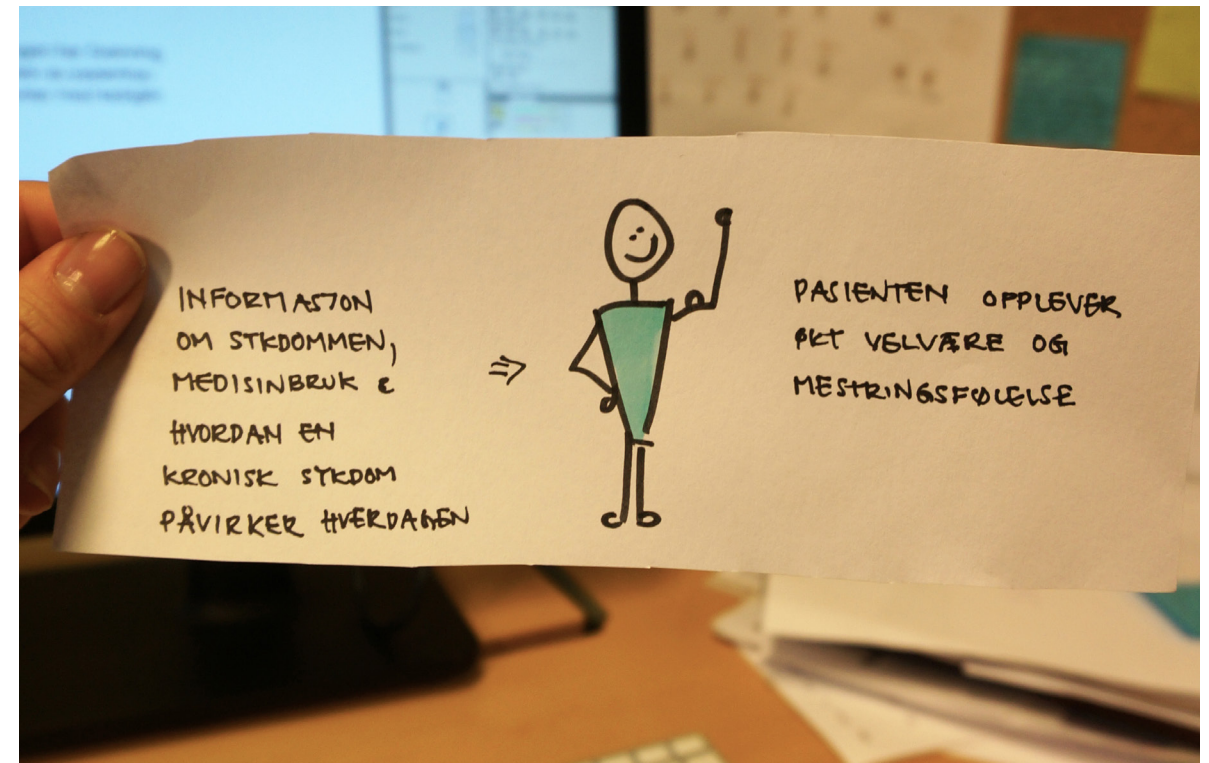 INFORMASJON
OM SYKDOMMEN,
MEDISINBRUK &
HVORDAN EN
KRONISK SYKDOM
PÅVIRKER HVERDAGEN
⇒
PASIENTEN OPPLEVER
ØKT VELVÆRE OG
MESTRINGSFØLELSE